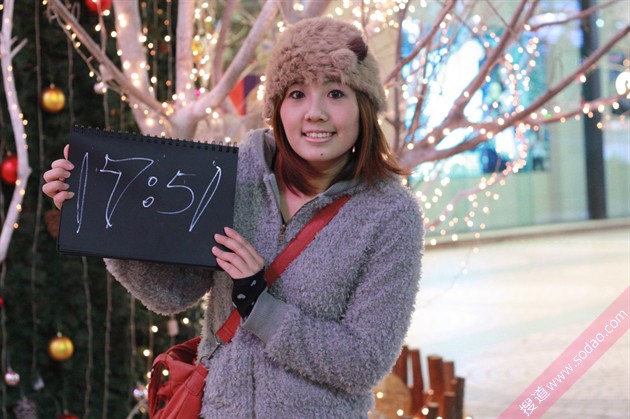 17:51
搜道 www.sodao.com